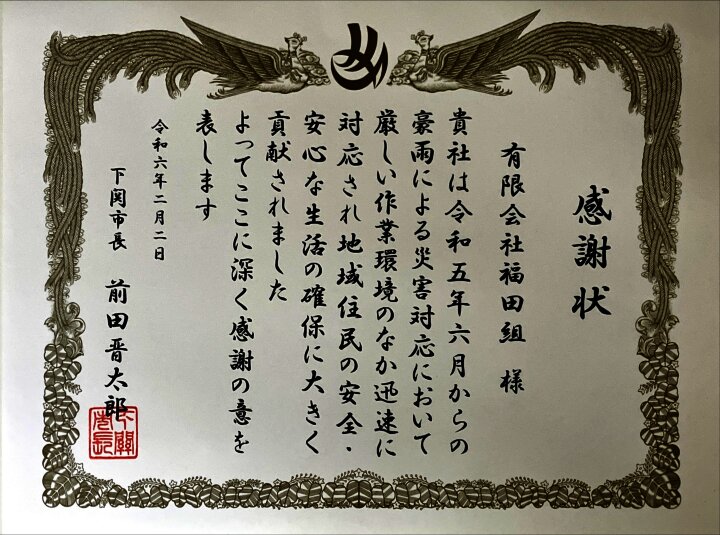 感謝状
有限会社福田組 様
貴社は令和五年六月からの
豪雨による災害対応において
厳しい作業環境のなか迅速に
対応され地域住民の安全・
安心な生活の確保に大きく
貢献されました
よってここに深く感謝の意を
表します
令和六年二月二日
下関市長 前田晋太郎
下關市長